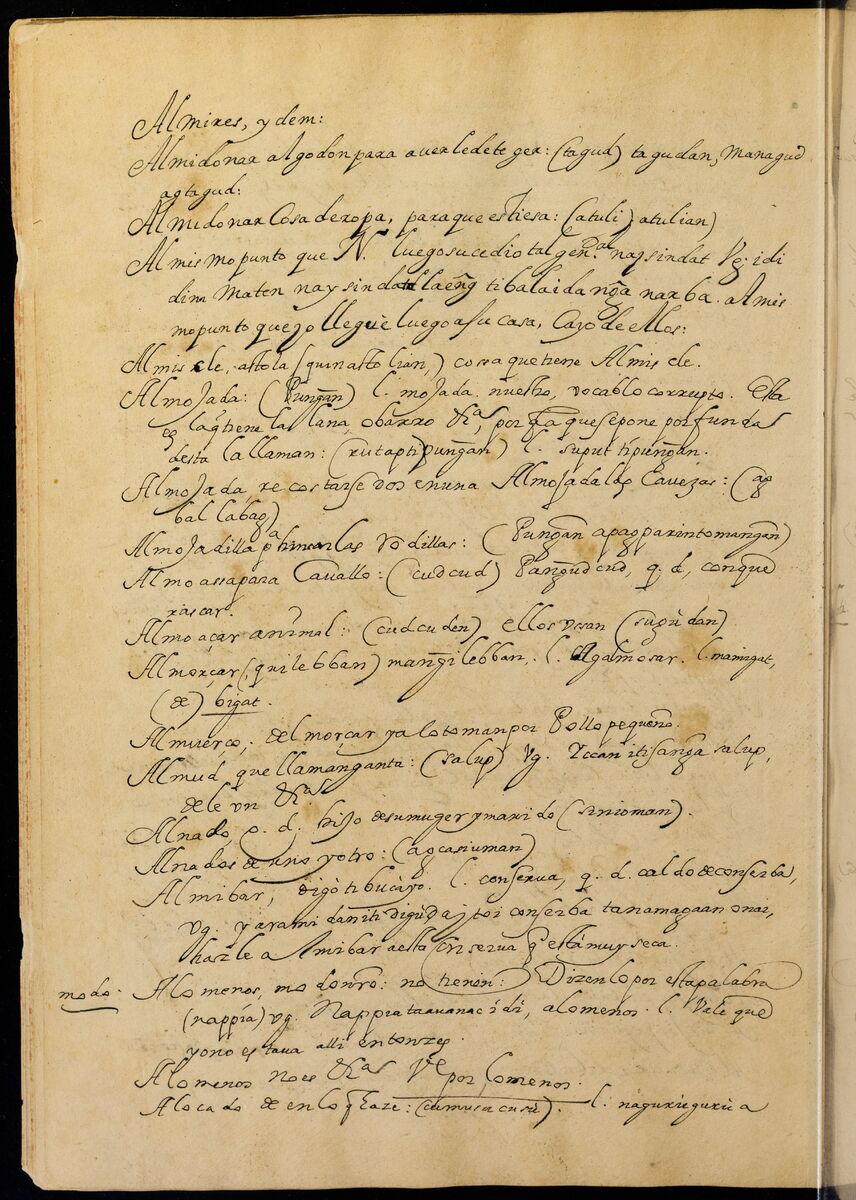 Almires, ydem:
Almidonar algodon para averle de teger: (tagud) tagudan, Managud
agtagud:
Almidonar Cosa de ropa, para que estiesa: (atuli) atulian)
Al mismo punto que N. luego sucedio tal naysindat Vg. idi
dim Maten naysindat tibalaida nga narba. al mis
mo punto que yo lleguè luego a su casa, Cayo de ellos:
Almiscle, astola (quinastolian,) cossa que tiene Almiscle.
Almojada: (Pungan) l. mojada. nuestro, vocablo corrupto. Esta
es la q tiene la llana, o barro &ras, por q la que se pone por funda
desta la llaman: (rutap ti pungan) l. suput ti pungan.
Almojada re costarse dos en una Almojada las Cavezas: (ag
ballabag)
Almojadilla pa hincar las rodillas: (Pungan a pagparintomangan)
Almoassa para Cavallo: (cudcud) Pangudcud, q. d, con que
rascar.
Almoaçar animal: (cudcuden) ellos usan (sugùdan)
Almorçar (quilebban) mangilebban. l. agalmosar. l. mamigat,
(de) bigat.
Almuerco; del morçar ya lo toman por Pollo pequeño.
Almud que llaman ganta: (salup) Vg. Yccan iti sanga salup,
dele un &ras
Alnado, q. d. hijo de su muger y marido (sinioman).
Alnados de uno y otro: (agcasiuman)
Almibar, digò ti bucàyo. l. conserva, q. d. caldo de conserba,
vg. yarami daniti digùdaytoi conserba ta namagaan onai,
hazle Almibar a esta conserva q está muy seca.
modo. Alomenos, mo donro: no tienen: Dizenlo por esta palabra
(nappia) vg. Nappia taavanac idi, alomenos. l. Vale que
yo no estava alli entonzes.
Alomenos no es &ras Ve por lo menos.
Alocado de en lo q haze: (cumusacusù). l. naguriegurica